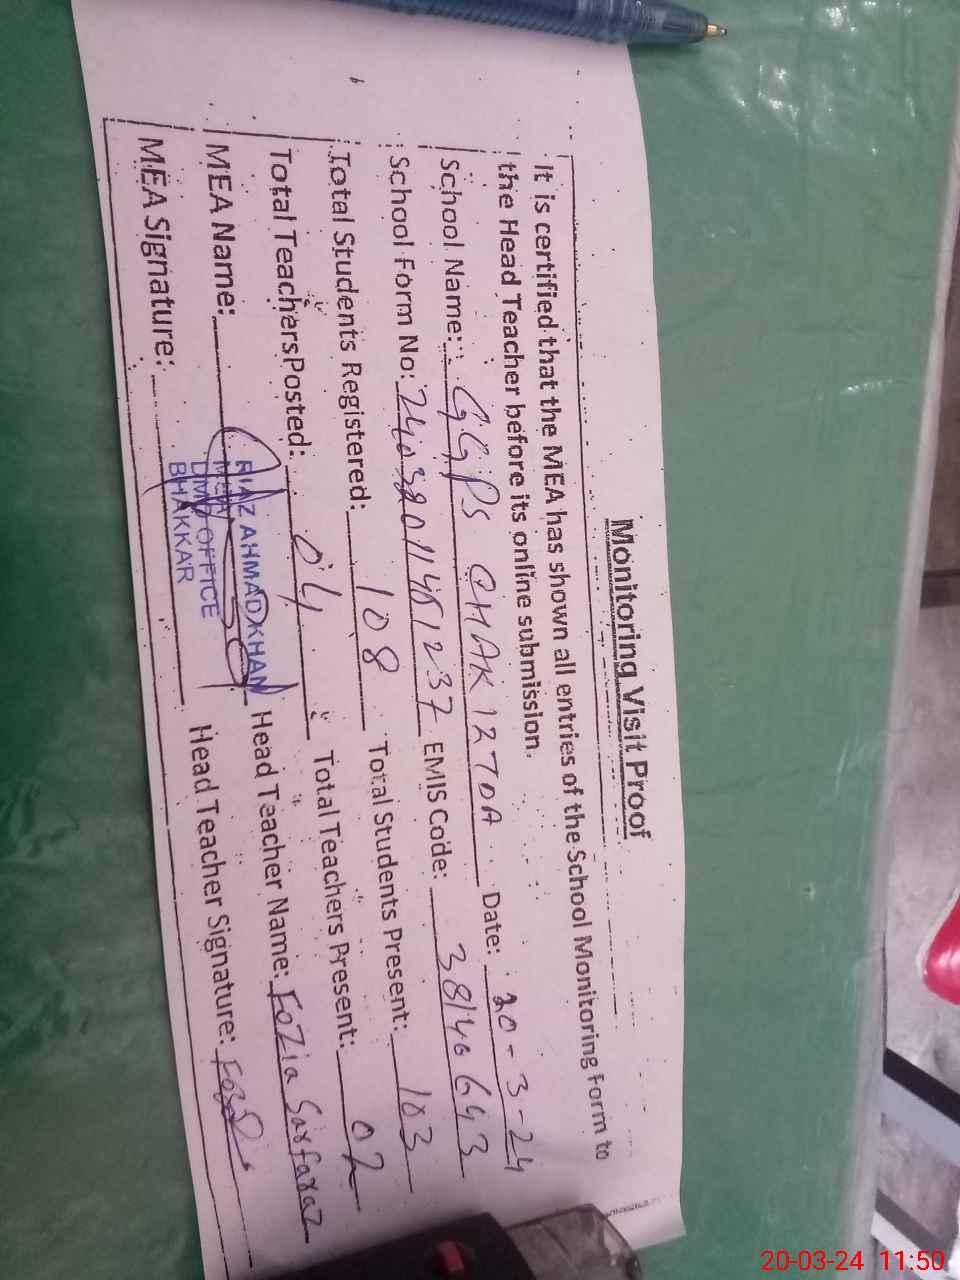 Monitoring Visit Proof
It is certified that the MEA has shown all entries of the School Monitoring Form to
the Head Teacher before its online submission.
School Name: GGPS CHAK 12 TDA Date: 20-3-24
School Form No: EMIS Code:
Total Students Registered: 108 Total Students Present: 103
Total Teachers Posted: 04 Total Teachers Present: 02
MEA Name: Head Teacher Name: Fozia Sarfaraz
RIAZ AHMAD KHAN
MEA
DMO OFFICE
BHAKKAR
MEA Signature: Head Teacher Signature:
20-03-24 11:50